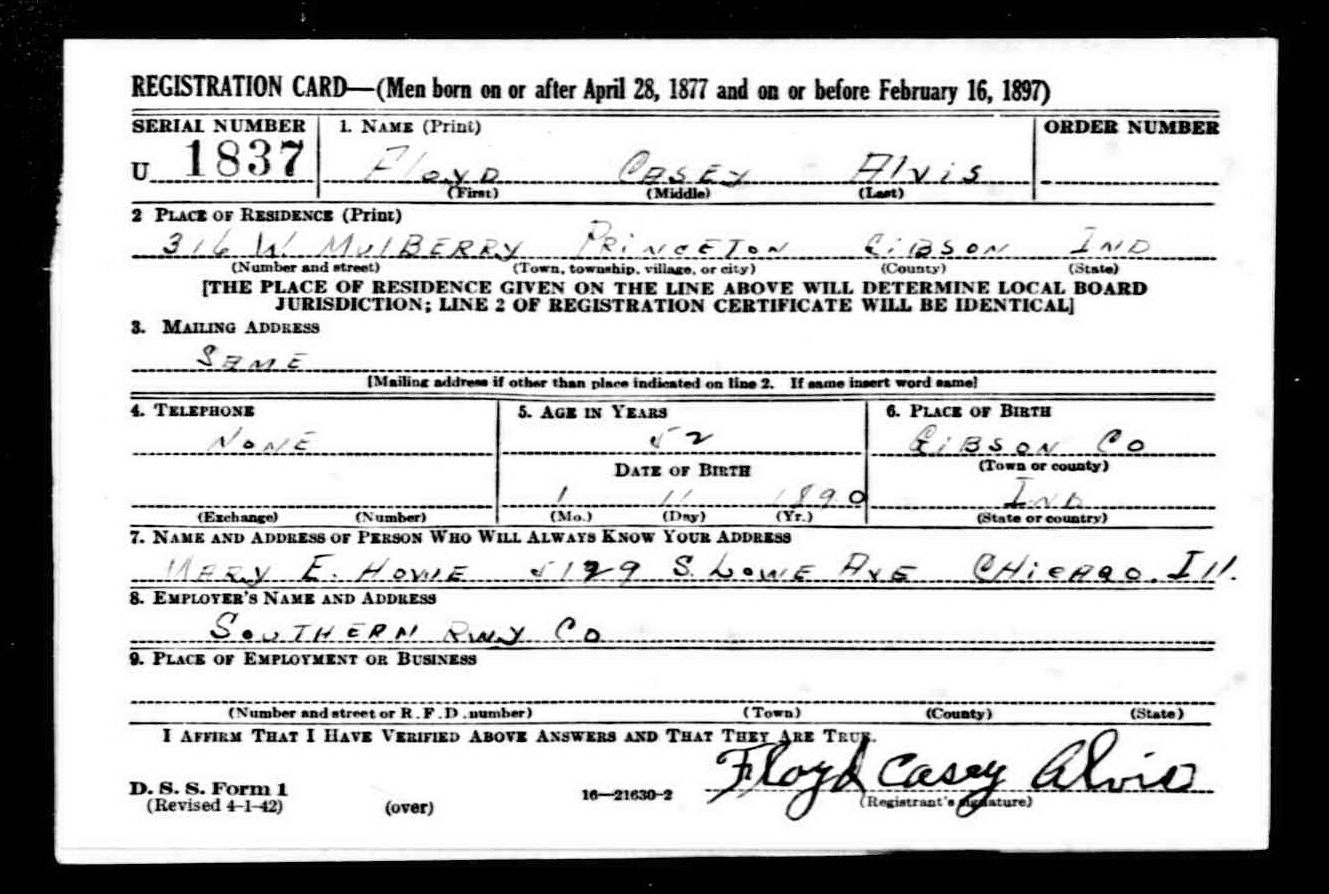 REGISTRATION CARD—(Men born on or after April 28, 1877 and on or before February 16, 1897)
SERIAL NUMBER 1. NAME (Print) ORDER NUMBER
U 1837 FLOYD CASEY Alvis
(First) (Middle) (Last)
2 PLACE OF RESIDENCE (Print)
316 W. MUlBERRY PRiNCETON GiBSON IND
(Number and street) (Town, township, village, or city) (County) (State)
[THE PLACE OF RESIDENCE GIVEN ON THE LINE ABOVE WILL DETERMINE LOCAL BOARD
JURISDICTION; LINE 2 OF REGISTRATION CERTIFICATE WILL BE IDENTICAL]
3. MAILING ADDRESS
SAME
[Mailing address if other than place indicated on line 2. If same insert word same]
4. TELEPHONE 5. AGE IN YEARS 6. PLACE OF BIRTH
NONE 52 GiBSON CO
DATE OF BIRTH (Town or county)
1 11 1890 IND
(Exchange) (Number) (Mo.) (Day) (Yr.) (State or country)
7. NAME AND ADDRESS OF PERSON WHO WILL ALWAYS KNOW YOUR ADDRESS
MARY E. HOWE 5129 S. LOWE AVE CHiCAGO. Ill.
8. EMPLOYER'S NAME AND ADDRESS
SOUTHERN RWY CO
9. PLACE OF EMPLOYMENT OR BUSINESS
(Number and street or R. F. D. number) (Town) (County) (State)
I AFFIRM THAT I HAVE VERIFIED ABOVE ANSWERS AND THAT THEY ARE TRUE.
Floyd Casey Alvis
D. S. S. Form 1
(Revised 4-1-42) (over) 16—21630-2 (Registrant's signature)